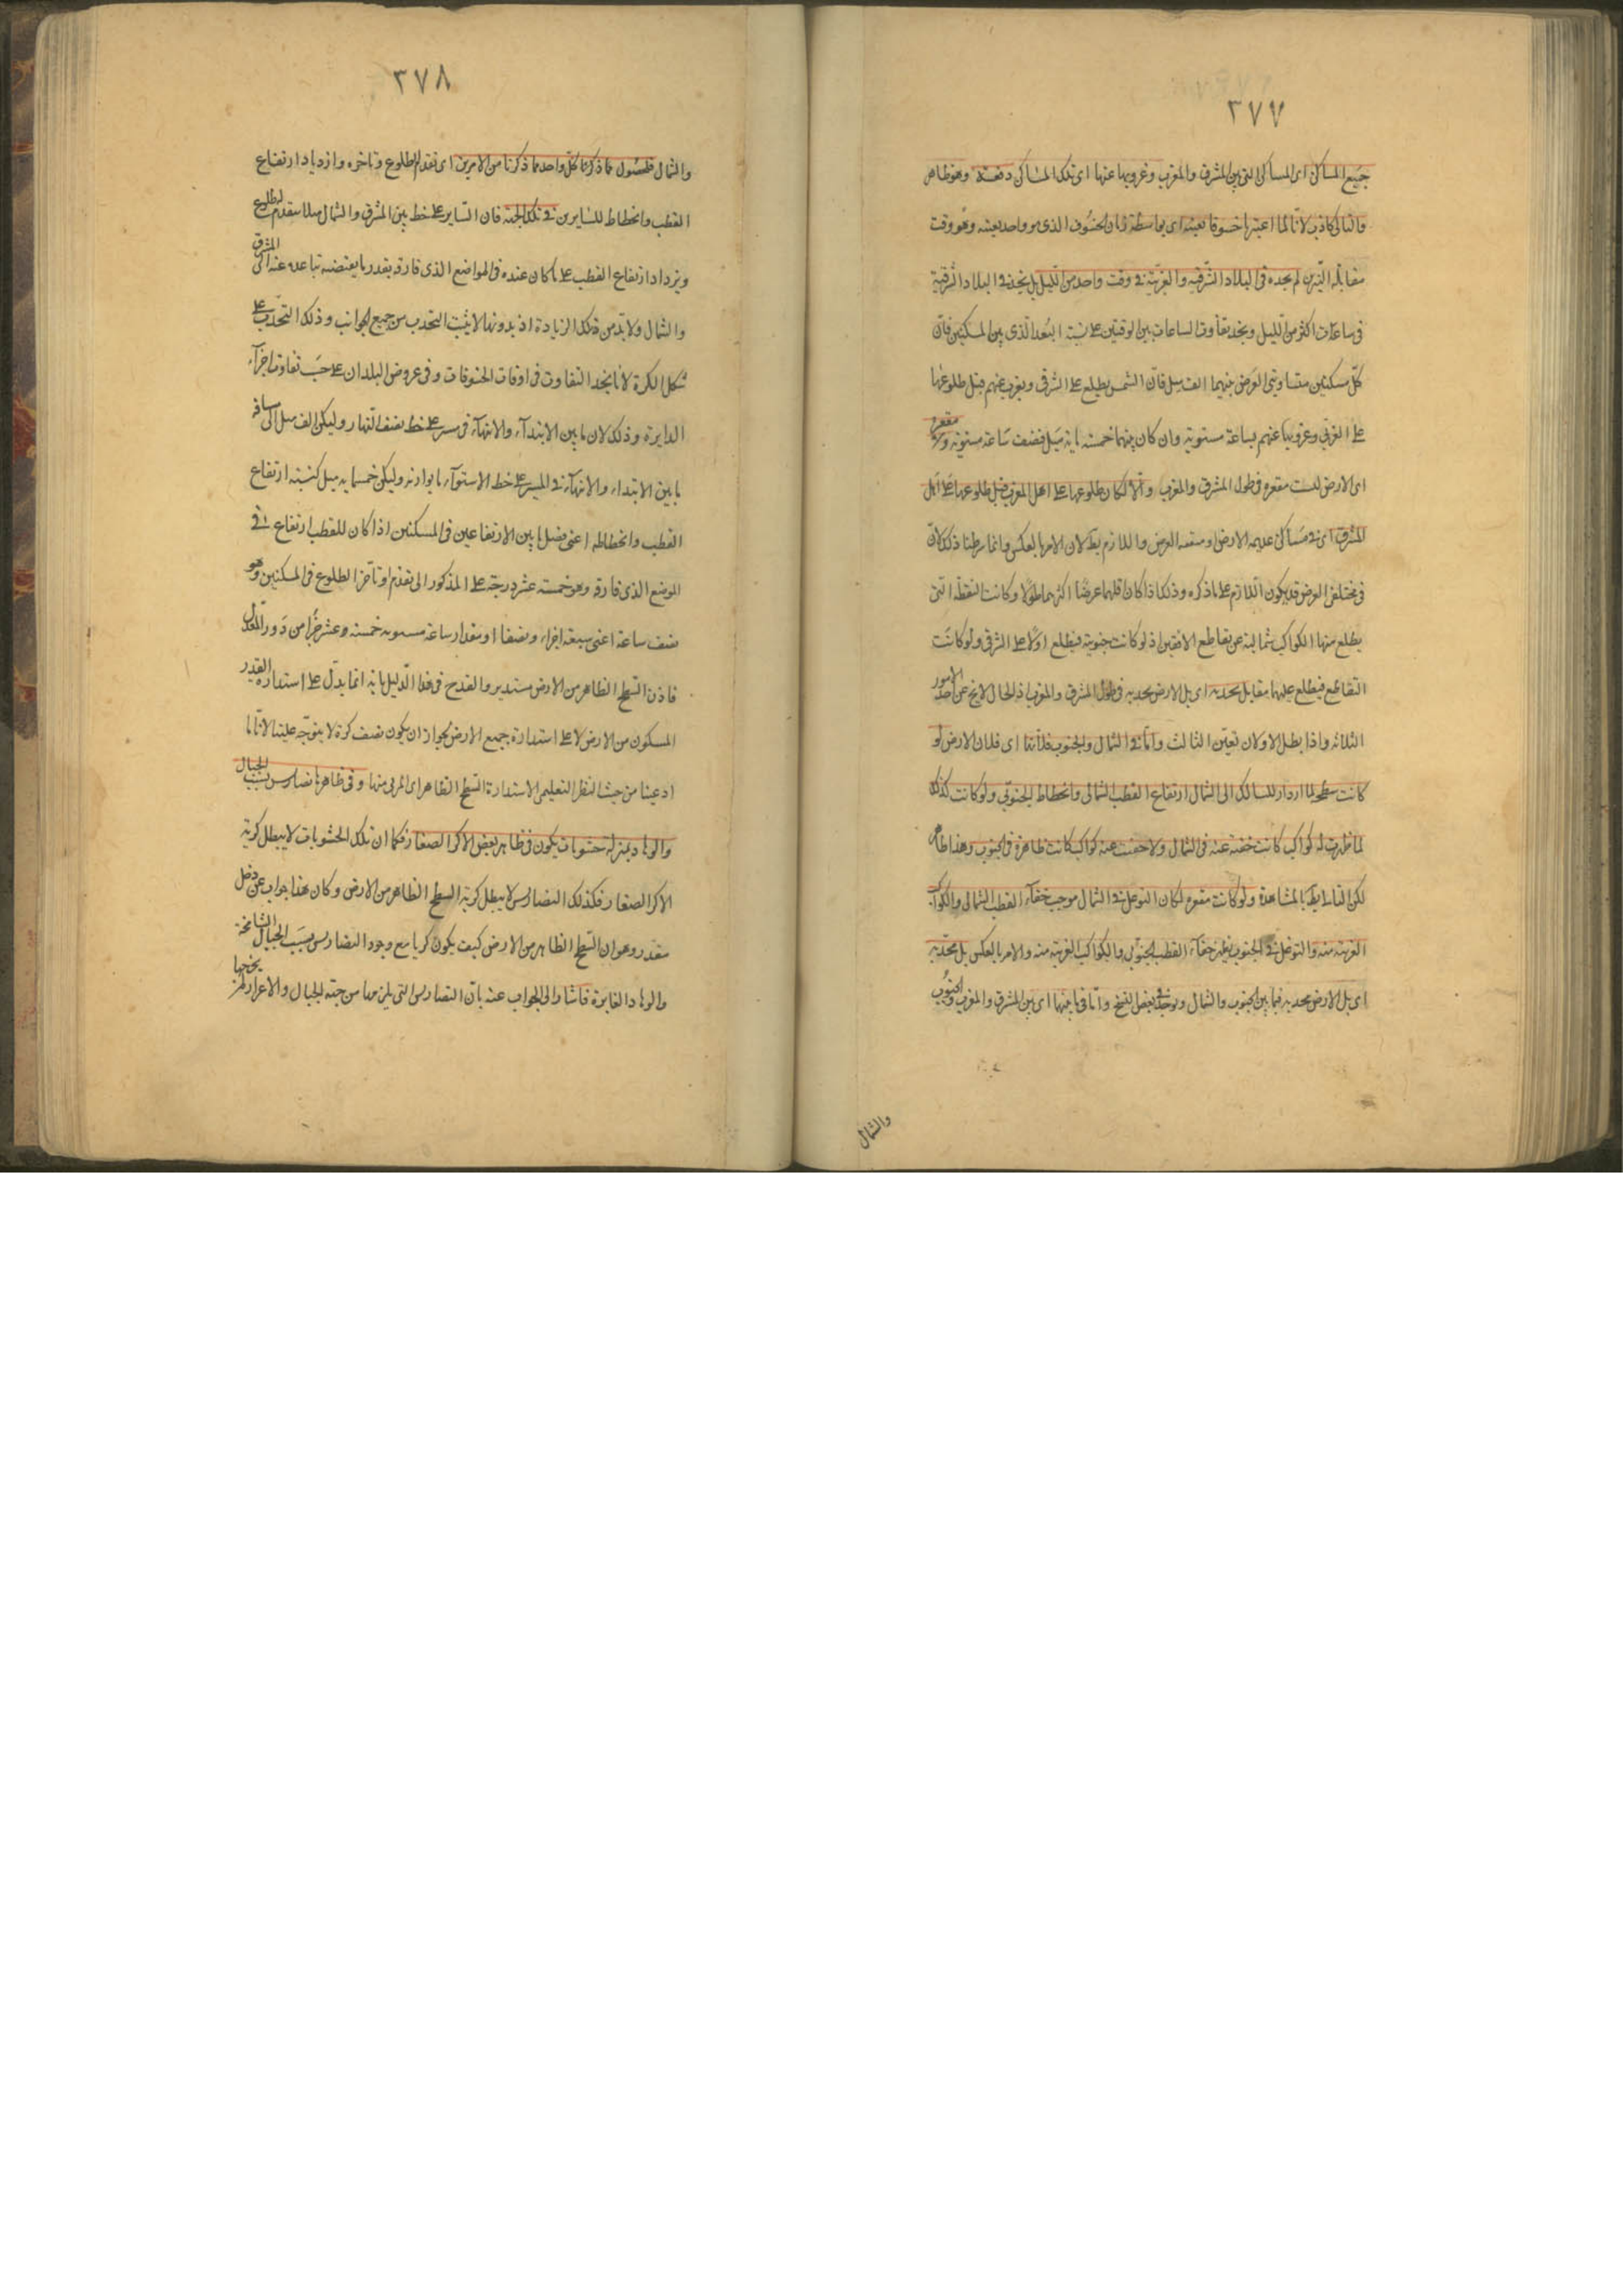 ٣٧٧
جميع المساكن اى المساكن التى بين المشرق والمغرب وغروبها عنها اى تلك المساكن دفعة وهو ظاهر
والتالى كاذب لانا لما اعتبرنا خسوفا بعينه اى بواسطة زمان الخسوف الذى هو واحد بعينه وهو وقت
مقابلة النيرين لم نجده فى البلاد الشرقية والغربية فى وقت واحد من الليل بل نجده فى البلاد الشرقية
فى ساعات اكثر من الليل ونجد تفاوت الساعات بين الوقتين على نسبة البعد الذى بين المسكنين فان
كل مسكنين متساويى العرض بينهما الف ميل فان الشمس يطلع على الشرقى ويغرب عنهم قبل طلوعها
على الغربى وغروبها عنهم بساعة مستوية وان كان بينهما خمسة ماية ميل فنصف ساعة مستوية مقعرة
اى الارض ليست مقعرة فى طول المشرق والمغرب والا لكان طلوعها على اهل المغرب قبل طلوعها على اهل
المشرق اى فى مساكن عديمة الارض او متفقة العرض واللازم بط لان الامر بالعكس وانما شرطنا ذلك لان
فى مختلفى العرض قد يكون اللازم على ما ذكره وذلك اذا كان اقلهما عرضا اكثرهما طولا وكانت النقطة التى
يطلع منها الكواكب شمالية عن تقاطع الافقين اذ لو كانت جنوبية فيطلع اولا على الشرقى ولو كانت
التقاطع فيطلع عليهما معا بل محدبة اى بل الارض محدبة فى طول المشرق والمغرب اذ الحال لا يخ عن احد الامور
الثلاثة واذا بطل الاولان تعين الثالث واما فى الشمال والجنوب فلانها اى فلان الارض لو
كانت مسطحة لما ازداد للسالك الى الشمال ارتفاع القطب الشمالى وانحطاط الجنوبى ولو كانت كذلك
لما ظهرت له كواكب كانت خفية عنه فى الشمال ولا خفيت عنه كواكب كانت ظاهرة فى الجنوب وهذا ظاهر
لكن التالى بط بالمشاهدة ولو كانت مقعرة لكان التوغل فى الشمال موجب خفاء القطب الشمالى والكواكب
القريبة منه والتوغل فى الجنوب خفاء القطب الجنوبى والكواكب القريبة منه والامر بالعكس بل محدبة
اى بل الارض محدبة فيما بين الجنوب والشمال ويوجد فى بعض النسخ واما فيما بينهما اى بين المشرق والمغرب والجنوب
والشمال
٣٧٨
والشمال فلحصول ما ذكرنا كل واحد مما ذكرنا من الامرين اى تقدم الطلوع وتاخره وازدياد ارتفاع
القطب وانحطاط للسايرين فى تلك الجهة فان الساير على خط بين المشرق والشمال مثلا يتقدم الطلوع
ويزداد ارتفاع القطب على ما كان عنده فى المواضع الذى فارقه بقدر ما يقتضيه تباعده عنه الى المشرق
والشمال ولا بد من تلك الزيادة اذ بدونها لا يثبت التحدب من جميع الجوانب وذلك التحدب على
شكل الكرة لانا نجد التفاوت فى اوقات الخسوفات وفى عروض البلدان على حسب تفاوت اجزاء
الدايرة وذلك لان ما بين الابتداء والانتهاء فى مسير على خط نصف النهار وليكن الف ميل الى مسافة
ما بين الابتداء والانتهاء فى المسير على خط الاستواء ما يوازنه وليكن خمسماية ميل كنسبة ارتفاع
القطب وانحطاطه اعنى فضل ما بين الارتفاعين فى المسكنين اذا كان للقطب ارتفاع فى
الموضع الذى فارقه وهو خمسة عشر درجة على المذكور الى تقدم او تاخر الطلوع فى المسكنين وهو
نصف ساعة اعنى سبعة اجزاء ونصفا او مقدار ساعة مستوية خمسة وعشر جزأ من دور المعدل
فاذن السطح الظاهر من الارض مستدير والقدح فى هذا الدليل بانه انما يدل على استدارة القدر
المسكون من الارض لا على استدارة جميع الارض لجواز ان يكون نصف كرة لا يتوجه علينا لانا ما
ادعينا من حيث النظر التعليمى الا استدارة السطح الظاهر اى المرئى منها وفى ظاهرها تضاريس بسبب الجبال
والوهاد بمنزلة خشونات يكون فى ظاهر بعض الاكر الصغار فكما ان تلك الخشونات لا يبطل كرية
الاكر الصغار فكذلك التضاريس لا يبطل كرية السطح الظاهر من الارض وكان هذا جواب عن دخل
مقدر وهو ان السطح الظاهر من الارض كيف يكون كريا مع وجود التضاريس بسبب الجبال الشامخة
والوهاد الغايرة فاشار الى الجواب عنه بان التضاريس التى يلزمها من جهة الجبال والاغوار لا يخرجها